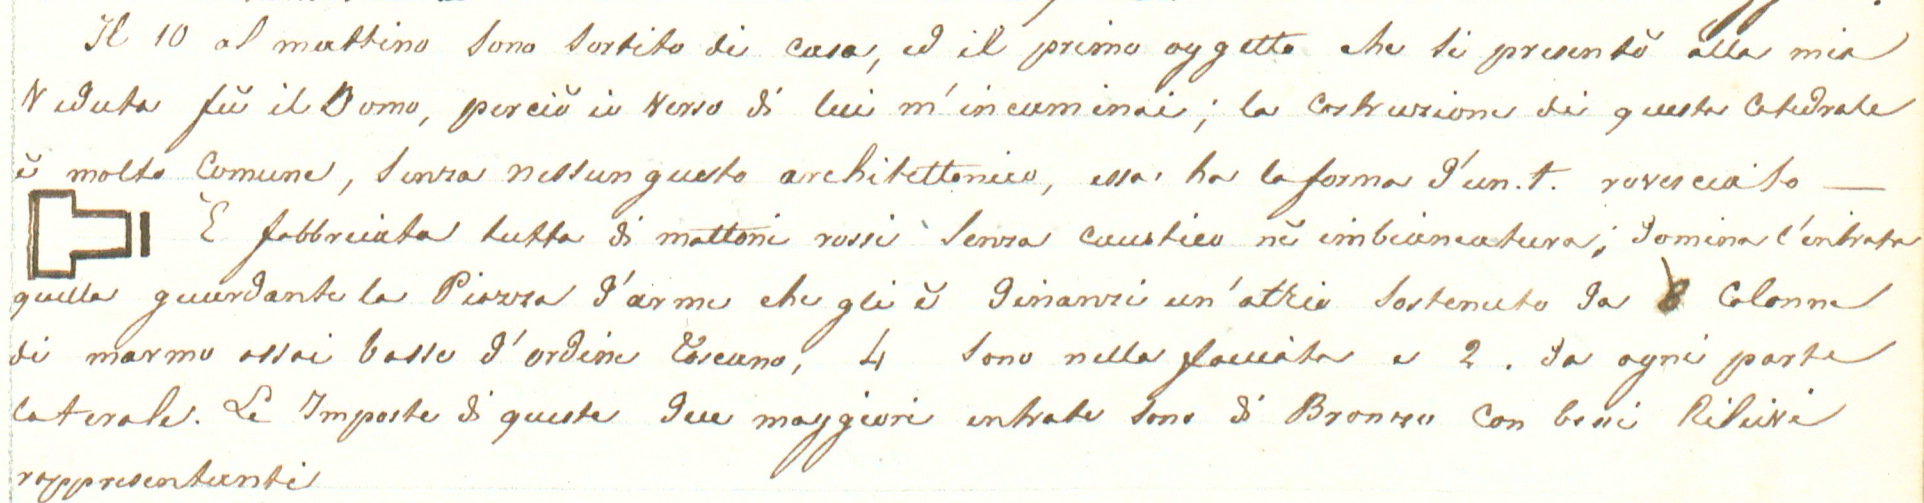 Il 10 al mattino sono sortito di casa, ed il primo oggetto che si presentò alla mia
veduta fù il Domo, perciò io verso di lui m'incaminai; la costruzione di questa Catedrale
è molto Comune, senza nessun gusto architettonico, essa ha la forma d'un. t. rovesciato —
È fabbricata tutta di mattoni rossi senza caustico nè imbiancatura; domina l'entrata
quella guardante la Piazza d'arme che gli è dinanzi un'atrio sostenuto da 8 Colonne
di marmo assai basse d'ordine Toscano, 4 sono nella facciata e 2. da ogni parte
laterale. Le Imposte di queste due maggiori entrate sono di Bronzo con bassi Rilievi
rappresentanti